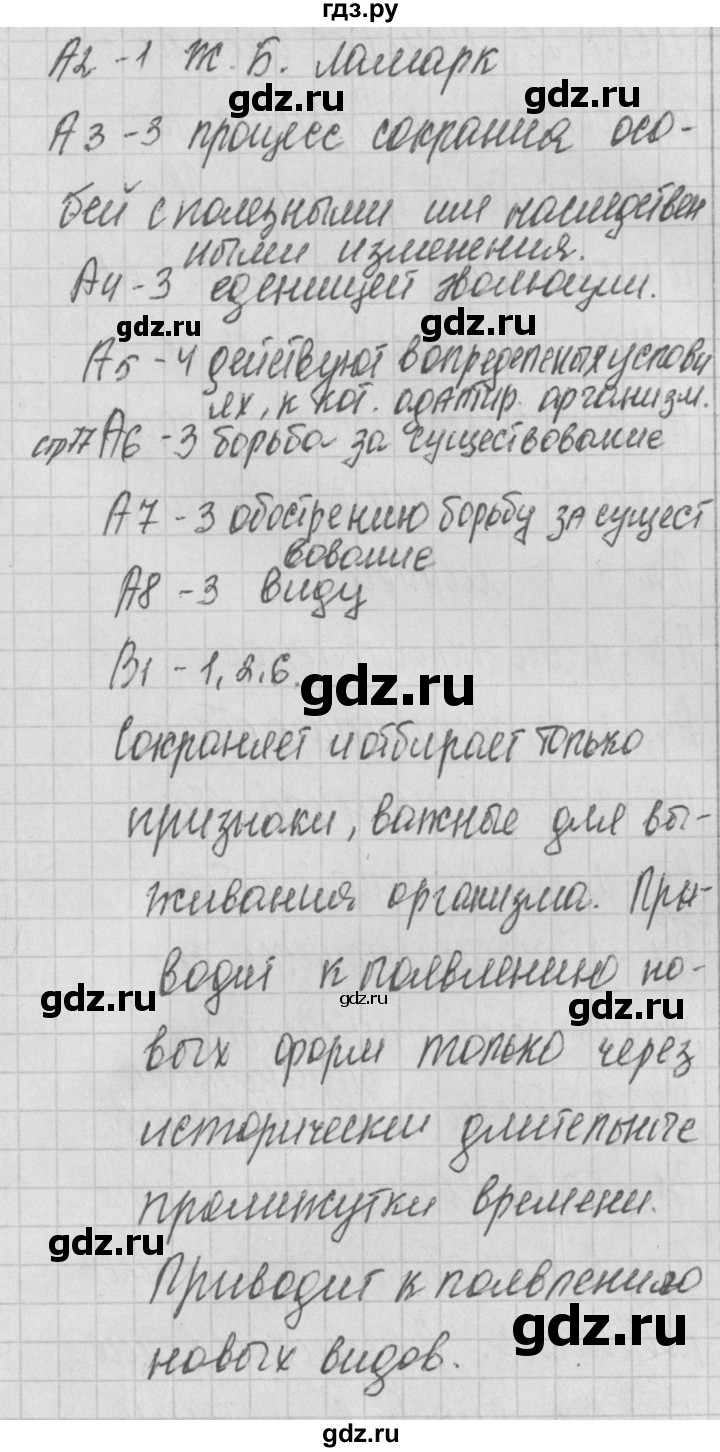 гдз.ру
А2 - 1 Ж. Б. Ламарк
gdz.ru
gdz.ru
А3 - 3 процесс сокрания осо-
бей с полезными или наследствен
ными изменения.
А4 - 3 еденицей эволюции.
gdz.ru
gdz.ru
А5 - 4 действуют в определеных услови
ях, к кот. адаптир. организм.
стр 77 А6 - 3 борьба за существование
А7 - 3 обострению борьбу за сущест
вование
А8 - 3 виду
В1 - 1, 2, 6.
gdz.ru
Сокраняет и отбирает только
признаки, важные для вы-
живания организма. При-
водит к появлению но-
gdz.ru
gdz.ru
gdz.ru
вых форм только через
исторически длительные
промижутки времени.
gdz.ru
Приводит к появлению
gdz.ru
новых видов.
gdz.ru